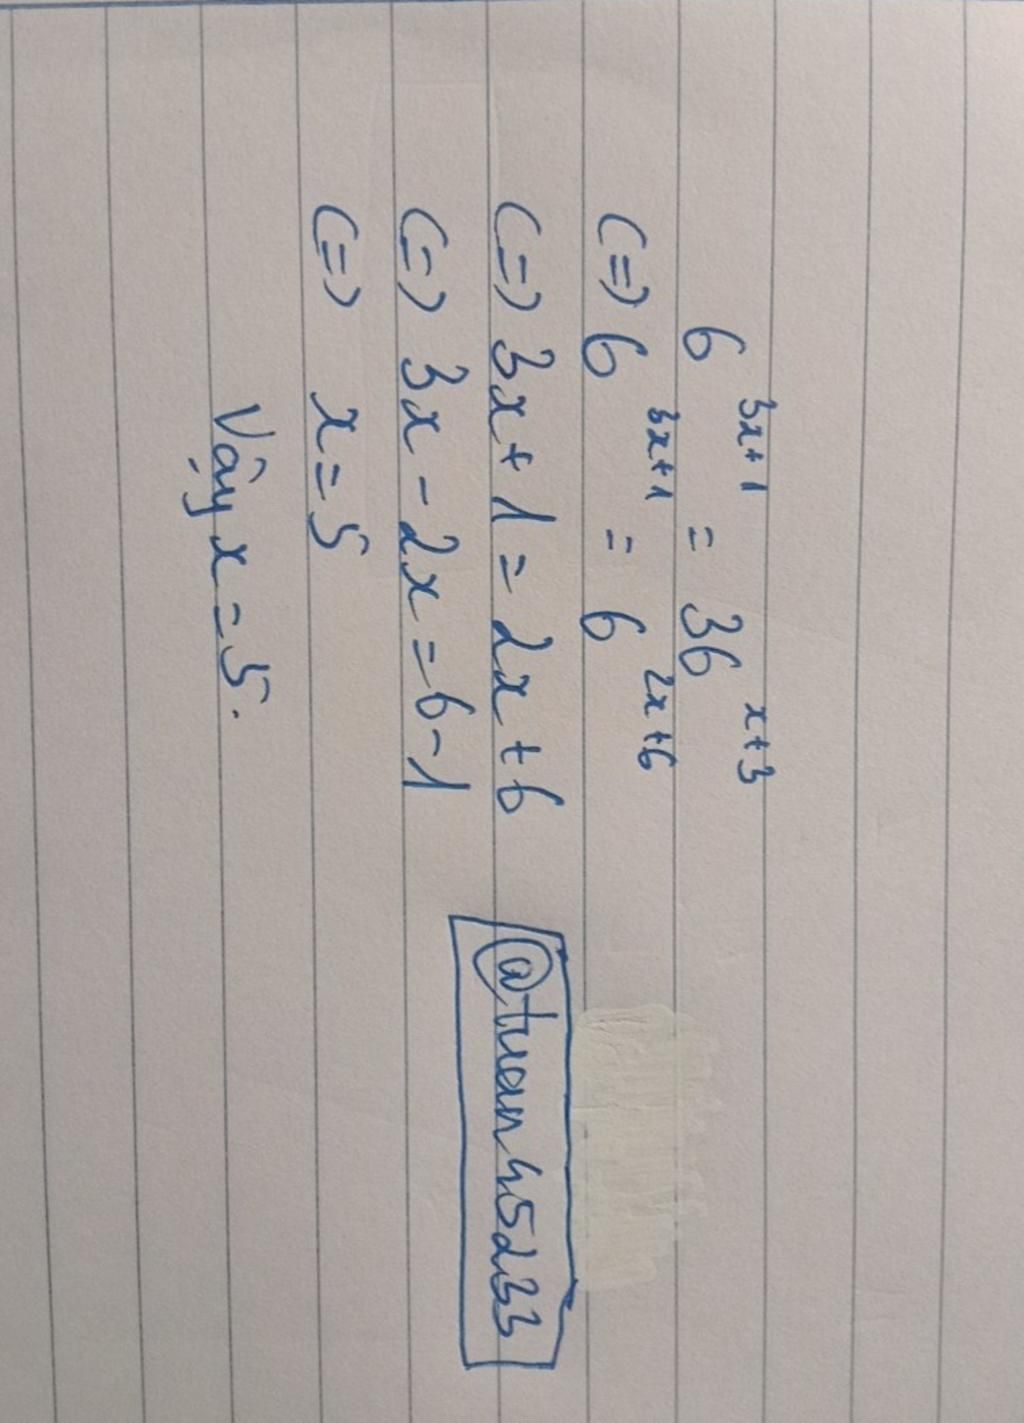 6^{3x+1} = 36^{x+3}
(=) 6^{3x+1} = 6^{2x+6}
(=) 3x+1 = 2x+6
(=) 3x-2x=6-1
(=) x=5
Vậy x=5.
@tuan45233